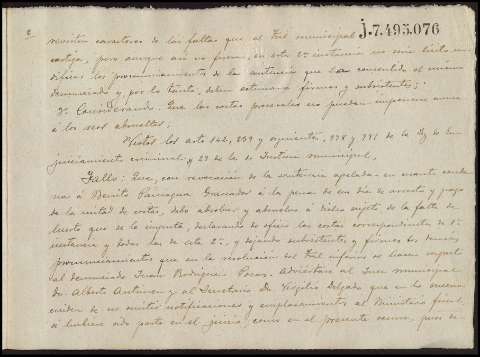 2
J.7.495.076
revisten caracteres de las faltas que el Trial municipal
castiga, pero aunque así no fuera, en esta 2ª instancia no sería lícito mo-
dificar los pronunciamientos de la sentencia que ha consentido el mismo
denunciado y por lo tanto, deben estimarse firmes y subsistentes;
3º Considerando: Que las costas procesales no pueden imponerse nunca
á los reos absueltos.
Vistos los arts 142, 239 y siguientes, 978 y 991 de la ley de En-
juiciamiento criminal, y 29 de la de Justicia municipal,
Fallo: Que, con revocación de la sentencia apelada en cuanto conde-
na á Benito Paniagua Granador á la pena de un día de arresto y pago
de la mitad de costas, debo absolver y absuelvo á dicho sujeto de la falta de
hurto que se le imputa, declarando de oficio las costas correspondientes de 1ª
instancia y todas las de esta 2ª, y dejando subsistentes y firmes los demás
pronunciamientos que en la resolución del Trial inferior se hacen respecto
al denunciado Juan Rodríguez Pozas. Adviértase al Juez municipal
Dn Alberto Antunez y al Secretario Dn Virgilio Delgado que en lo sucesivo
cuiden de no omitir notificaciones y emplazamientos al Ministerio fiscal
si hubiere sido parte en el juicio, como en el presente ocurre, pues de